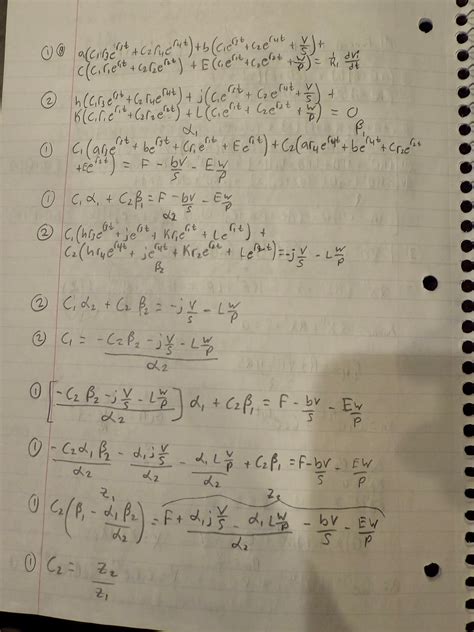 ① a(c₁r₃e^{r₃t} + c₂r₄e^{r₄t}) + b(c₁e^{r₃t} + c₂e^{r₄t} + V/S) +
c(c₁r₁e^{r₁t} + c₂r₂e^{r₂t}) + E(c₁e^{r₁t} + c₂e^{r₂t} + W/P) = R₁ dVi/dt
② h(c₁r₃e^{r₃t} + c₂r₄e^{r₄t}) + j(c₁e^{r₃t} + c₂e^{r₄t} + V/S) +
K(c₁r₁e^{r₁t} + c₂r₂e^{r₂t}) + L(c₁e^{r₁t} + c₂e^{r₂t} + W/P) = 0
α₁ β₁
① C₁(ar₃e^{r₃t} + be^{r₃t} + cr₁e^{r₁t} + Ee^{r₁t}) + C₂(ar₄e^{r₄t} + be^{r₄t} + cr₂e^{r₂t}
+ Ee^{r₂t}) = F - bV/S - EW/P
① C₁α₁ + C₂β₁ = F - bV/S - EW/P
α₂
② C₁(hr₃e^{r₃t} + je^{r₃t} + Kr₁e^{r₁t} + Le^{r₁t}) +
C₂(hr₄e^{r₄t} + je^{r₄t} + Kr₂e^{r₂t} + Le^{r₂t}) = -jV/S - LW/P
β₂
② C₁α₂ + C₂β₂ = -jV/S - LW/P
② C₁ = (-C₂β₂ - jV/S - LW/P)/α₂
① [(-C₂β₂ - jV/S - LW/P)/α₂] α₁ + C₂β₁ = F - bV/S - EW/P
① -C₂α₁β₂/α₂ - α₁jV/S/α₂ - α₁LW/P/α₂ + C₂β₁ = F - bV/S - EW/P
Z₁ Z₂
① C₂(β₁ - α₁β₂/α₂) = F + (α₁jV/S - α₁LW/P)/α₂ - bV/S - EW/P
① C₂ = Z₂/Z₁